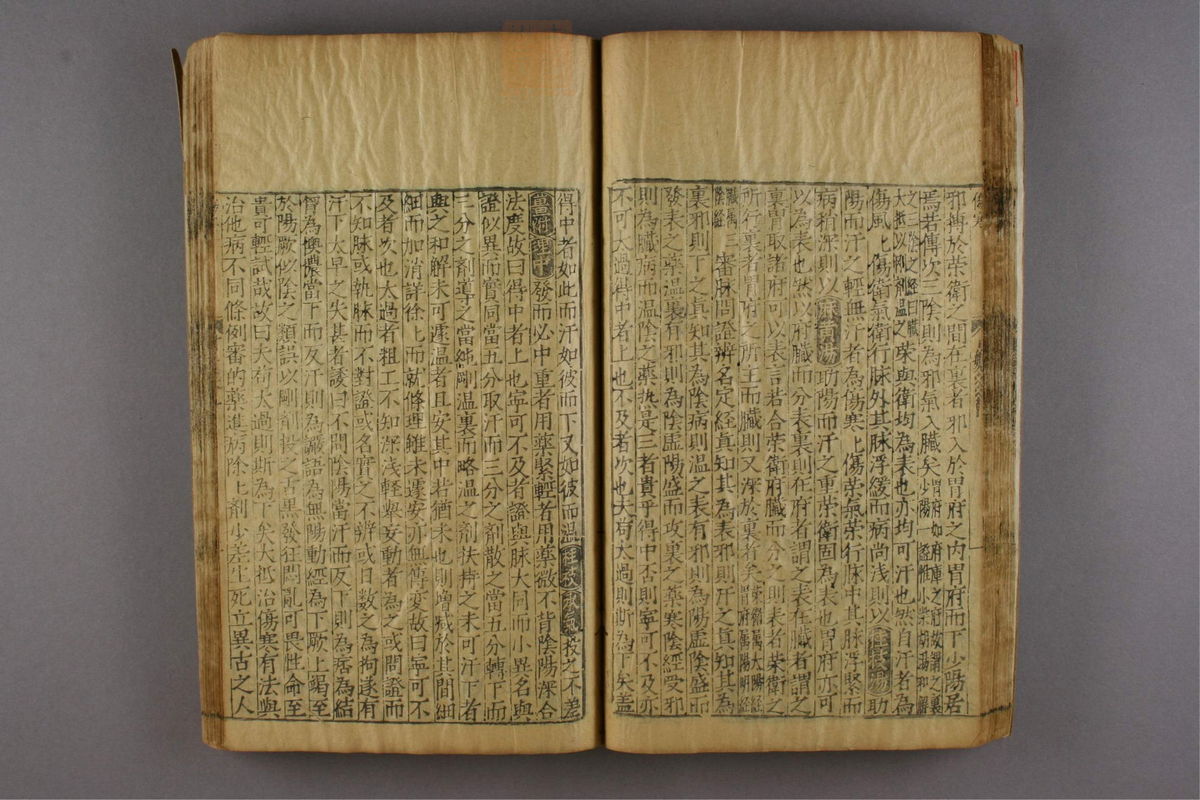 邪搏於榮衛之間在裏者邪入於胃府之內胃府而下少陽居
焉若傳次三陰則為邪氣入臟矣
大抵以剛劑溫之榮與衛均為表也亦均可汗也然自汗者為
傷風上傷衛氣衛行脉外其脉浮緩而病尚淺則以桂枝湯助
陽而汗之輕無汗者為傷寒上傷榮氣榮行脉中其脉浮緊而
病稍深則以麻黃湯助陽而汗之重榮衛固為表也胃府亦可
以為表也然以府臟而分表裏則在府者謂之表在臟者謂之
裏胃取諸府可以表言若合榮衛府臟而分之則表者榮衛之
所行裏者胃府之所主而臟則又深於裏者矣
審脉問證辨名定經真知其為表邪則汗之真知其為
裏邪則下之真知其為陰病則溫之表有邪則為陽虛陰盛而
發表之藥溫裏有邪則為陰虛陽盛而攻裏之藥寒陰經受邪
則為臟病而溫陰之藥熱是三者貴乎得中否則寧可不及亦
不可太過得中者上也不及者次也太過則斯為下矣蓋
得中者如此而汗如彼而下又如彼而溫桂枝承氣投之不差
薑附理中發而必中重者用藥緊輕者用藥微不背陰陽深合
法度故曰得中者上也寧可不及者證與脉大同而小異名與
證似異而實同當五分取汗而三分之劑散之當五分轉下而
三分之劑導之當純剛溫裏而略溫之劑扶持之未可汗下者
與之和解未可遽溫者且安其中若猶未也則增減於其間細
細而加消詳徐上而就條理雖未遽安亦無傳變故曰寧可不
及者次也太過者粗工不知深淺輕舉妄動者為之或問證而
不知脉或執脉而不對證或名實之不辨或日數之為拘遂有
汗下太早之失甚者諉曰不問陰陽當汗而反下則為痞為結
胷為懊憹當下而反汗則為譫語為無陽動經為下厥上竭至
於陽厥似陰之類誤以剛劑投之舌黑發狂悶亂可畏性命至
貴可輕試哉故曰大過則斯為下矣大抵治傷寒有法與
治他病不同條例審的藥進病除上劑少差上死立異古之人